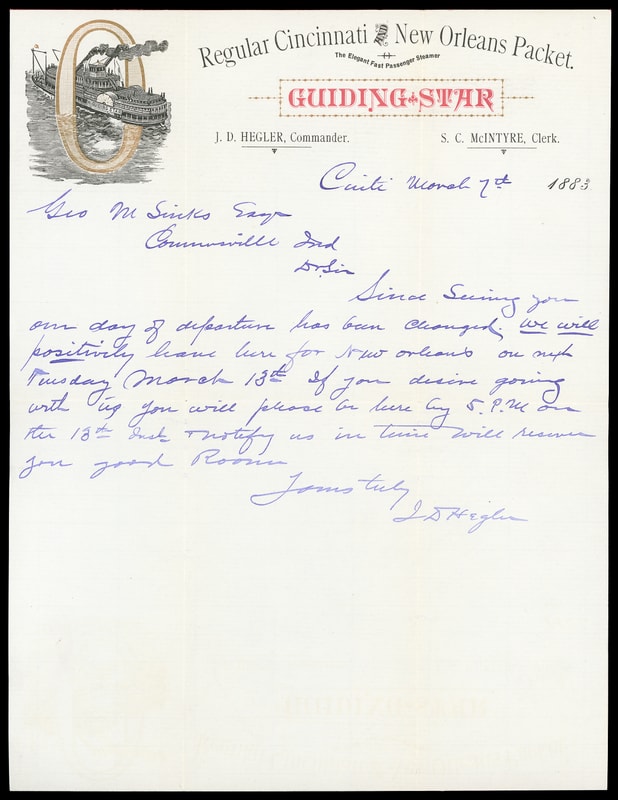 Regular Cincinnati and New Orleans Packet.
The Elegant Fast Passenger Steamer
GUIDING STAR
J. D. HEGLER, Commander. S. C. McINTYRE, Clerk.
Cinti March 7th 1883
Geo M Sinks Esqr
Connersville Ind
Dr Sir
Since Seeing you
our day of departure has been changed. We will
positively leave here for New orleans on next
Tuesday March 13th If you desire going
with us you will please be here by 5. P.M on
the 13th Inst notify us in time will reserve
you good Room
Yours truly
J D Hegler